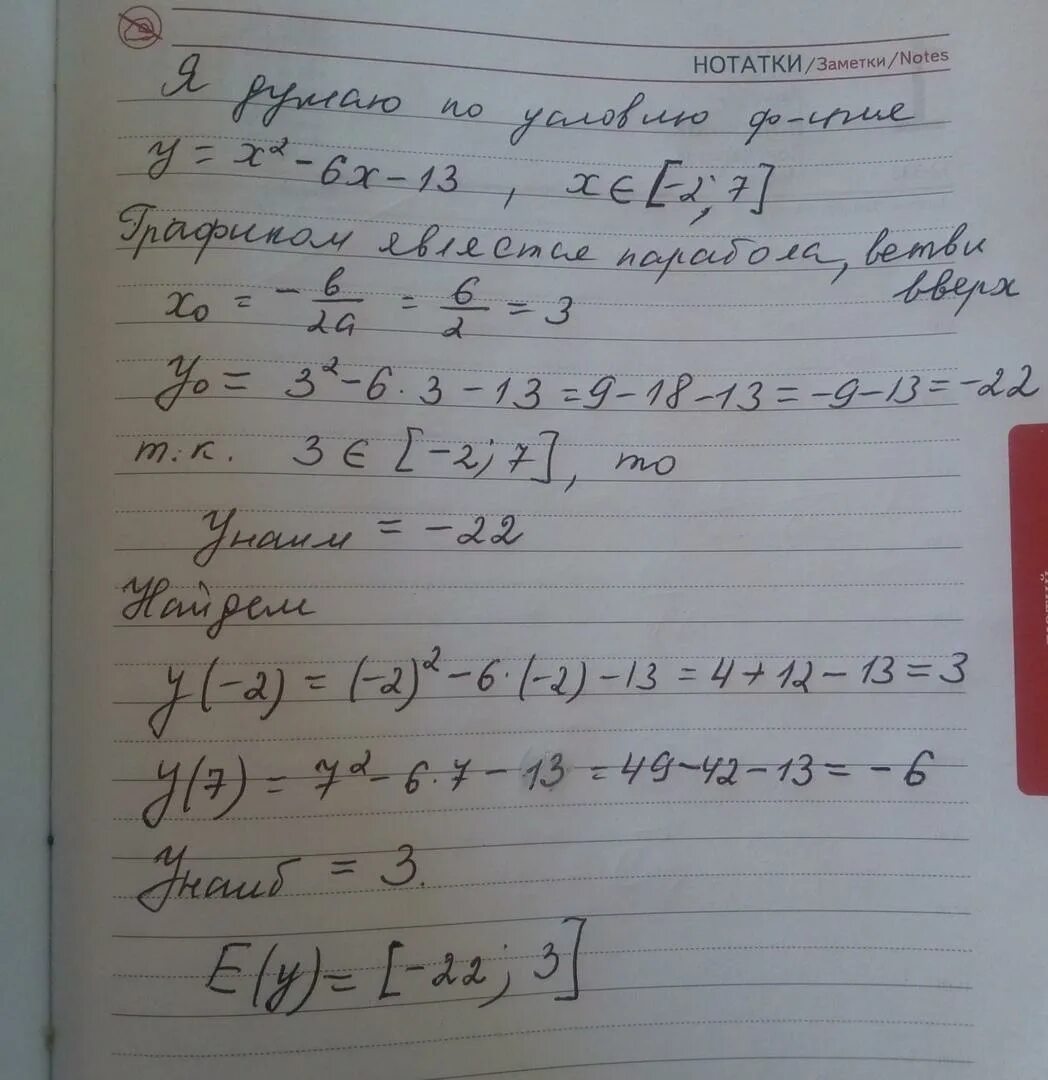 НОТАТКИ/Заметки/Notes
Я думаю по условию ф-ция
y = x² - 6x - 13 , x ∈ [-2; 7]
Графиком является парабола, ветви
вверх
x₀ = - в/2a = 6/2 = 3
y₀ = 3² - 6 · 3 - 13 = 9 - 18 - 13 = -9 - 13 = -22
т.к. 3 ∈ [-2; 7], то
Yнаим = -22
Найдем
y(-2) = (-2)² - 6 · (-2) - 13 = 4 + 12 - 13 = 3
y(7) = 7² - 6 · 7 - 13 = 49 - 42 - 13 = -6
Yнаиб = 3.
E(y) = [-22; 3]